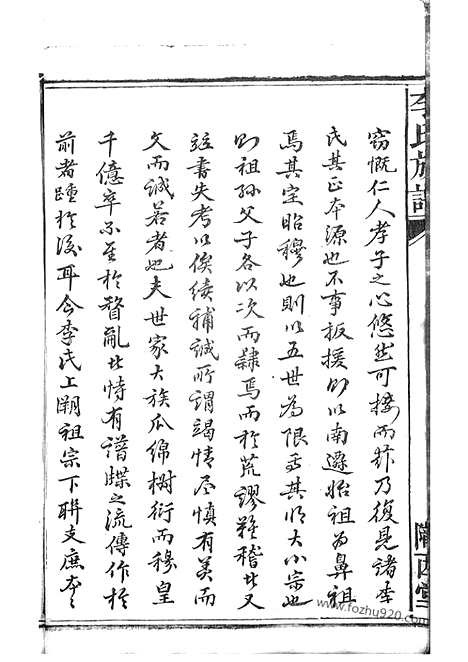 李氏族譜
隴西堂
竊慨仁人孝子之心悠然可接而於乃復見諸李
氏其正本源也不事扳援則以南遷始祖為鼻祖
焉其定昭穆也則以五世為限焉其明大小宗也
則祖孫父子各以次而隸焉而於荒謬難稽者又
註書失考以俟續補誠所謂竭情尽慎有美而
文而誠若者也夫世家大族瓜綿樹衍而穆皇
千億卒不至於瞀亂者恃有譜牒之流傳作於
前者踵於後耳今李氏上溯祖宗下聯支庶本之
www.fozhu920.com